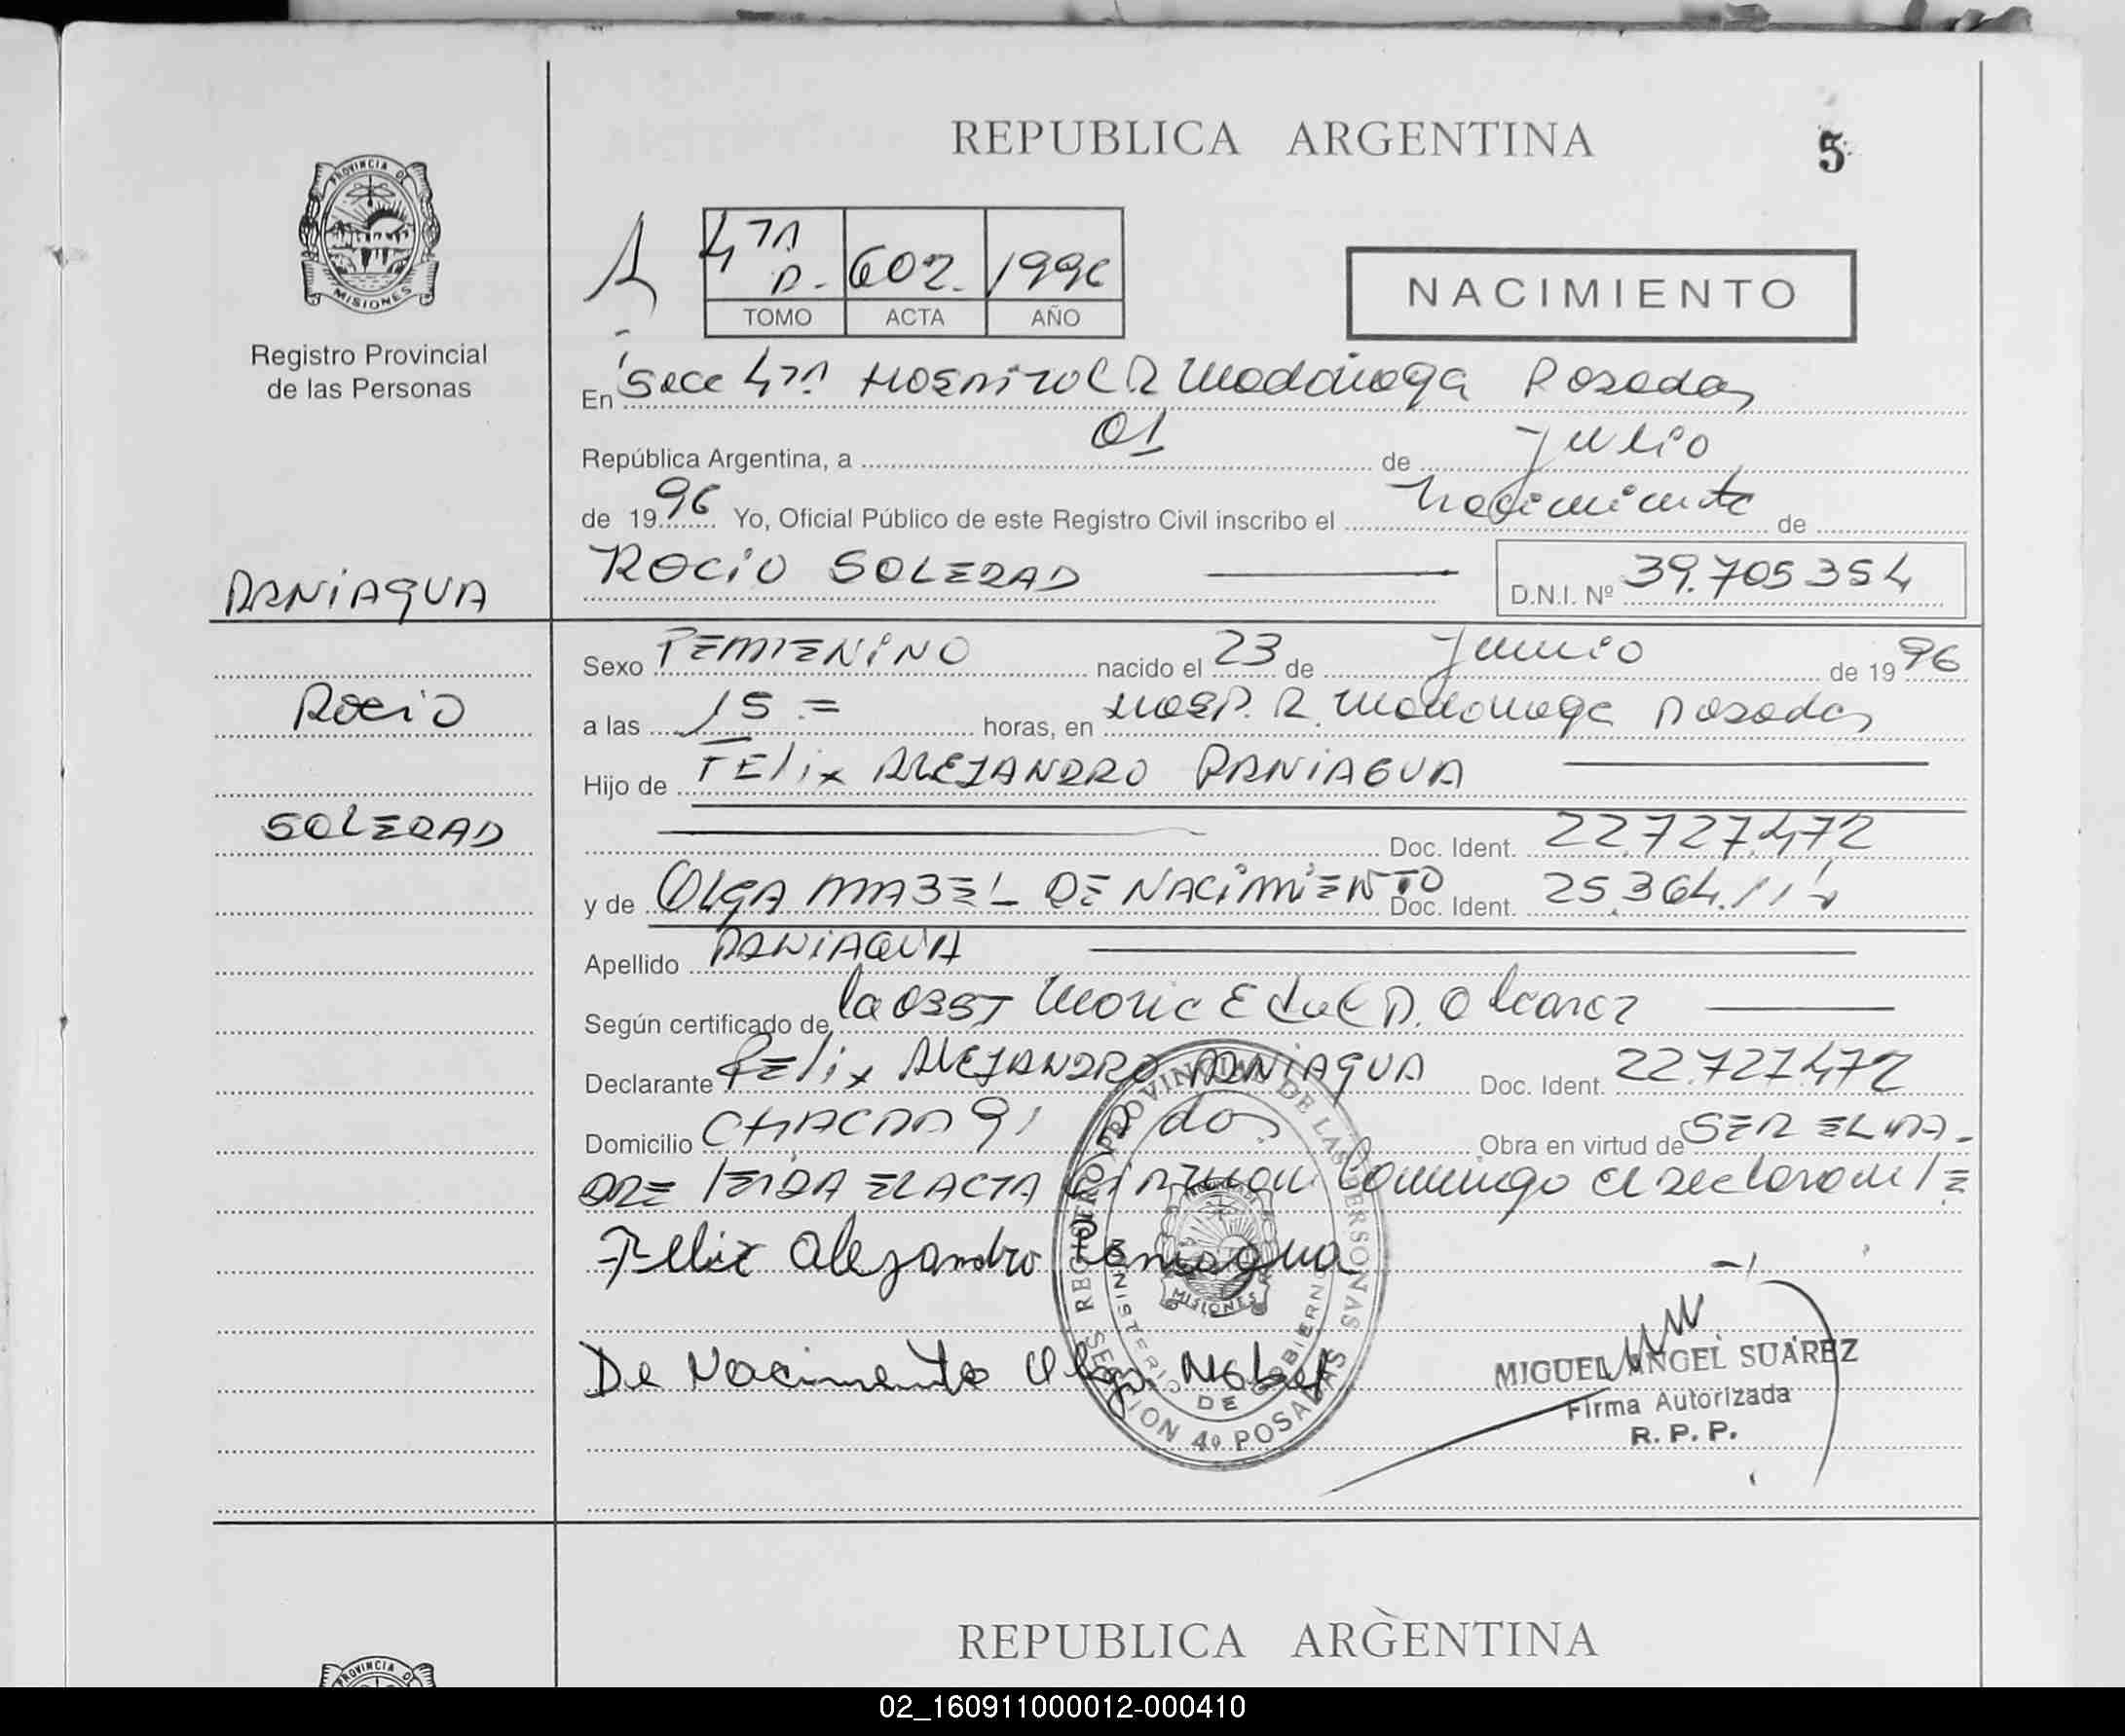 REPUBLICA ARGENTINA
5
PROVINCIA D
MISIONES
Registro Provincial
de las Personas
4ta 602 1996
TOMO ACTA AÑO
NACIMIENTO
En Secc 4ta Hospital R Madariaga Posadas
República Argentina, a 01 de Julio
de 1996 Yo, Oficial Público de este Registro Civil inscribo el nacimiento de
PANIAGUA
ROCIO SOLEDAD D.N.I. Nº 39.705354
Sexo FEMENINO nacido el 23 de Junio de 1996
ROCIO
a las 15 = horas, en Hosp. R. Madariaga Posadas
Hijo de FELIX ALEJANDRO PANIAGUA
SOLEDAD
Doc. Ident. 22.727.472
y de OLGA MABEL DE NACIMIENTO Doc. Ident. 25.364.
Apellido PANIAGUA
Según certificado de la OBST Maria
Declarante FELIX ALEJANDRO PANIAGUA Doc. Ident. 22.727.472
Domicilio CHACRA 91 Pdas Obra en virtud de SER EL PA-
DRE LEIDA EL ACTA Firman Conmigo el declarante
Felix Alejandro Paniagua
De Nacimento Olga Mabel
REGISTRO PROVINCIAL DE LAS PERSONAS
MINISTERIO DE GOBIERNO
MISIONES
SECCION 4º POSADAS
MIGUEL ANGEL SUAREZ
Firma Autorizada
R. P. P.
REPUBLICA ARGENTINA
PROVINCIA D
02_160911000012-000410